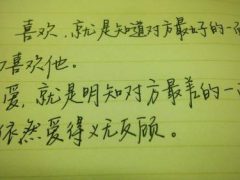 喜欢，就是知道对方最好的一
喜欢他。
爱，就是明知对方最差的一
依然爱得义无反顾。